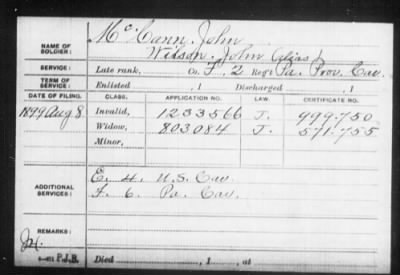 McCann, John
NAME OF SOLDIER: Wilson, John (Alias)
SERVICE: Late rank, Co. F, 2 Reg't Pa. Prov. Cav.
TERM OF SERVICE: Enlisted , 1 Discharged , 1
DATE OF FILING. CLASS. APPLICATION NO. LAW. CERTIFICATE NO.
1899 Aug 8 Invalid, 1233566 J. 999.750
Widow, 803084 J. 571.755
Minor,
E. 4. U.S. Cav
ADDITIONAL SERVICES: F. 6 Pa. Cav.
REMARKS:
P.J.B. Died , 1 , at